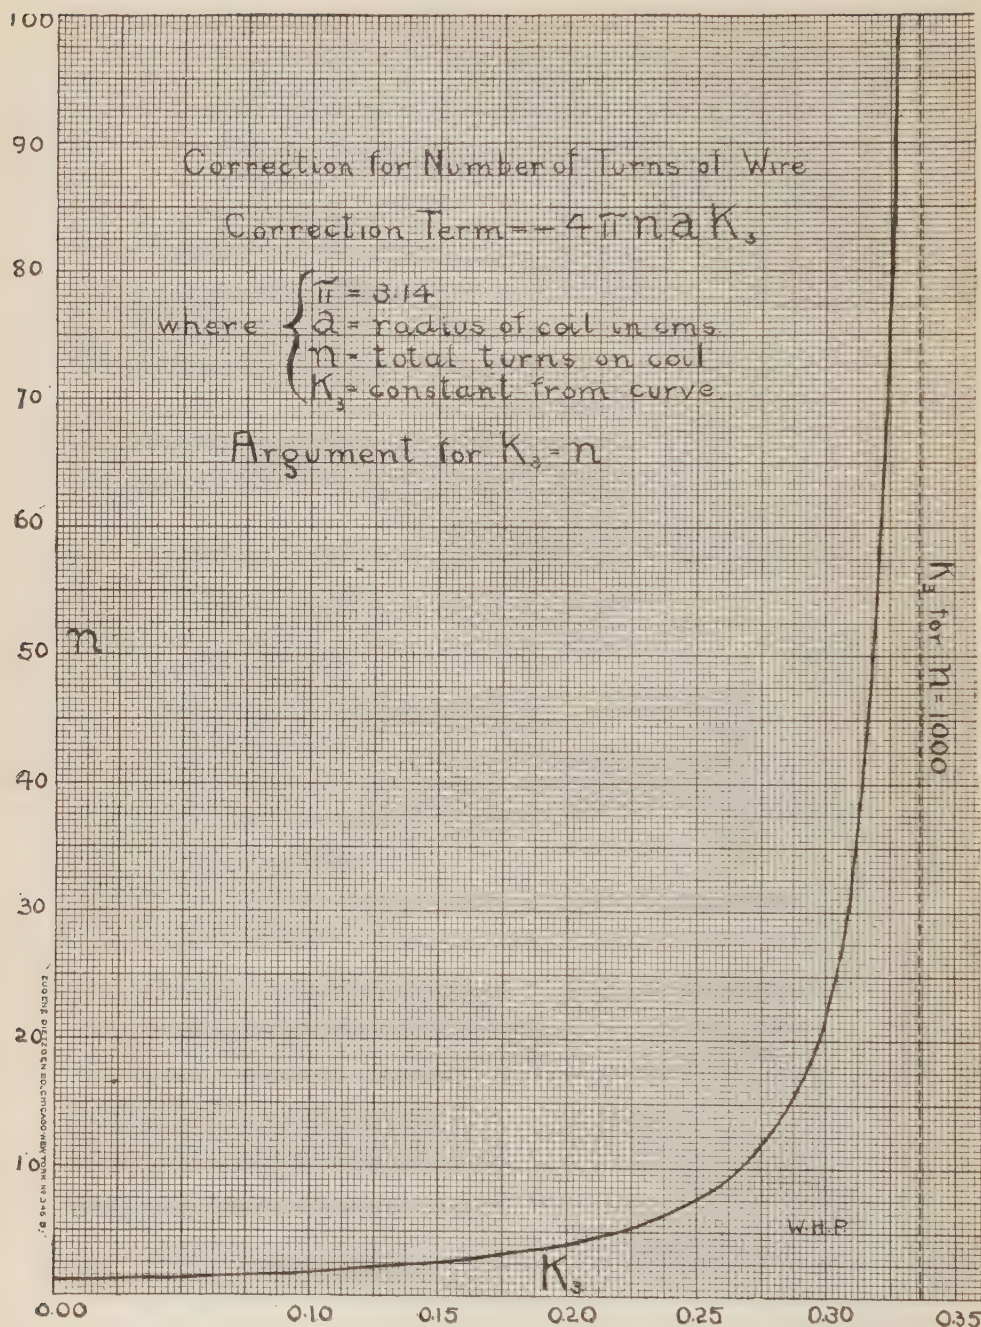 100
90
Correction for Number of Turns of Wire
Correction Term = - 4 π n a K₃
80
where { π = 3.14
a = radius of coil in cms.
n = total turns on coil
K₃ = constant from curve.
70
Argument for K₃ = n
60
K₃ for n = 1000
50 n
40
30
EUGENE DIETZGEN CO., CHICAGO-NEW YORK NO 346 B.
20
10
W.H.P.
K₃
0.00 0.10 0.15 0.20 0.25 0.30 0.35